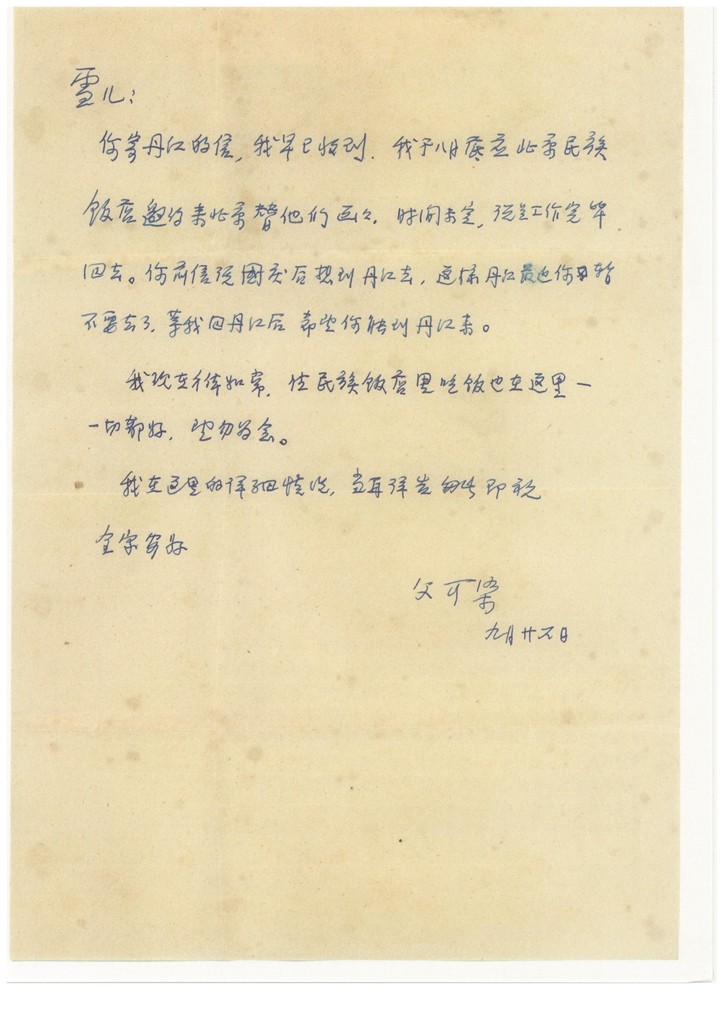 雪儿：
你寄丹江的信，我早已收到．我于八月底应北京民族
饭店邀约来北京替他们画々．时间未定，说是工作完毕
回去。你前信说国庆后想到丹江去，这样丹江你暂
不要去了，等我回丹江后 希望你能到丹江来。
我现在身体如常，住民族饭店里吃饭也在这里一
一切都好，望勿为念。
我在这里的详细情况，当再详告 匆此 即祝
全家安好
父可染
九月廿六日